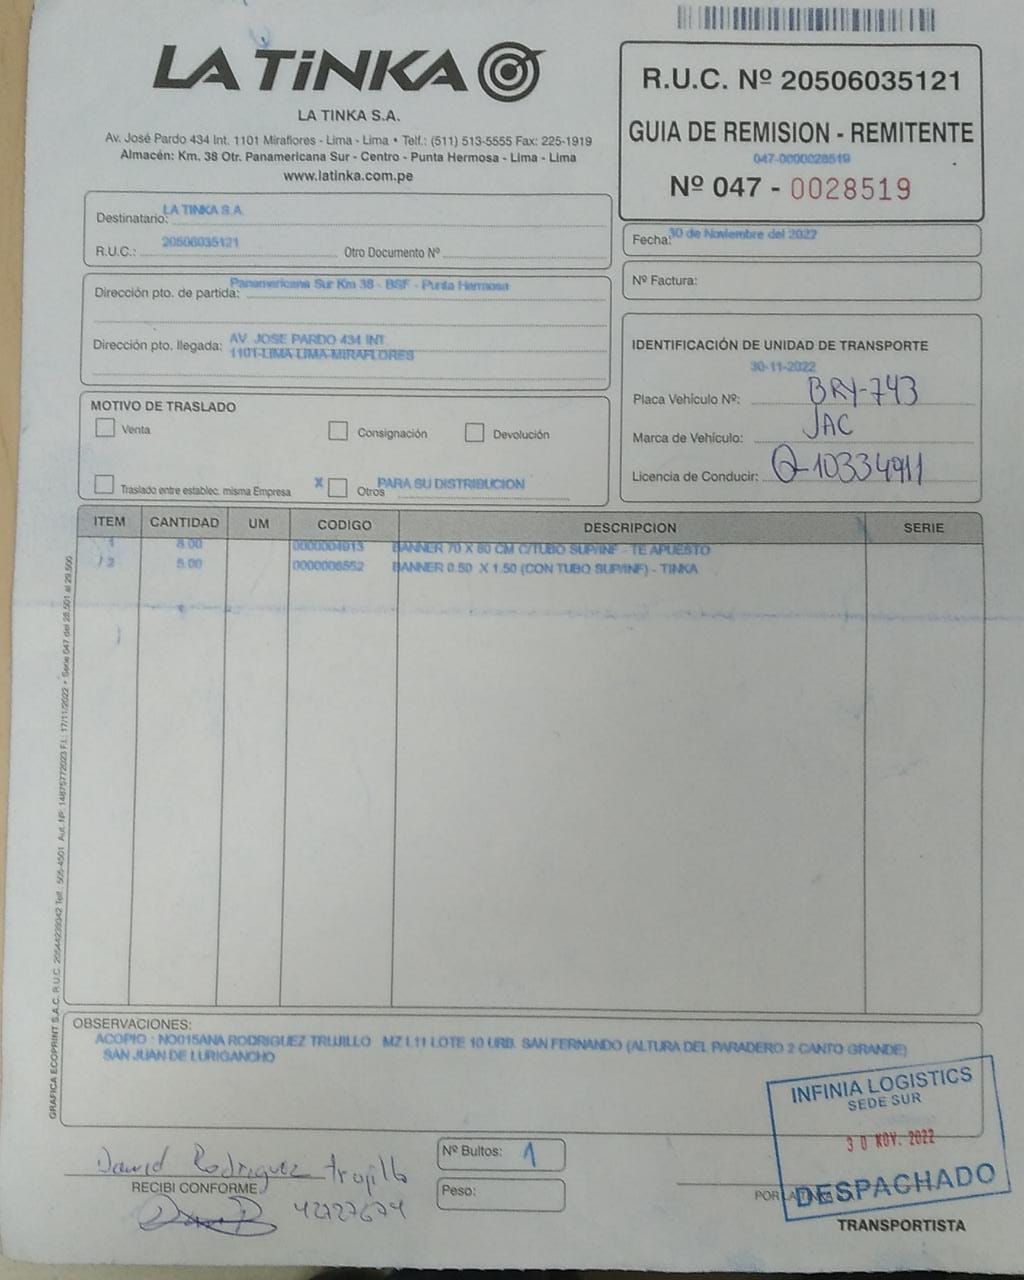 LA TiNKA
LA TINKA S.A.
Av. José Pardo 434 Int. 1101 Miraflores - Lima - Lima • Telf.: (511) 513-5555 Fax: 225-1919
Almacén: Km. 38 Otr. Panamericana Sur - Centro - Punta Hermosa - Lima - Lima
www.latinka.com.pe
R.U.C. Nº 20506035121
GUIA DE REMISION - REMITENTE
047-0000028519
Nº 047 - 0028519
Destinatario: LA TINKA S.A.
R.U.C.: 20506035121 Otro Documento Nº
Fecha: 30 de Noviembre del 2022
Nº Factura:
Dirección pto. de partida: Panamericana Sur Km 38 - BSF - Punta Hermosa
Dirección pto. llegada: AV. JOSE PARDO 434 INT.
1101-LIMA-LIMA-MIRAFLORES
IDENTIFICACIÓN DE UNIDAD DE TRANSPORTE
30-11-2022
Placa Vehículo Nº: BRY-743
Marca de Vehículo: JAC
Licencia de Conducir: Q-10334911
MOTIVO DE TRASLADO
Venta Consignación Devolución
Traslado entre establec. misma Empresa X Otros PARA SU DISTRIBUCION
ITEM CANTIDAD UM CODIGO DESCRIPCION SERIE
1 8.00 0000004913 BANNER 70 X 80 CM C/TUBO SUP/INF - TE APUESTO
2 5.00 0000008552 BANNER 0.50 X 1.50 (CON TUBO SUP/INF) - TINKA
GRAFICA ECOPRINT S.A.C. R.U.C. 20544239342 Telf.: 505-4501 Aut. Nº: 14875772023 F.I.: 17/11/2022 • Serie 047 del 28,501 al 29,500
OBSERVACIONES:
ACOPIO : NO015ANA RODRIGUEZ TRUJILLO MZ L11 LOTE 10 URB. SAN FERNANDO (ALTURA DEL PARADERO 2 CANTO GRANDE)
SAN JUAN DE LURIGANCHO
INFINIA LOGISTICS
SEDE SUR
30 NOV. 2022
DESPACHADO
David Rodriguez trujillo
RECIBI CONFORME
42727674
Nº Bultos: 1
Peso:
POR LA TINKA
TRANSPORTISTA